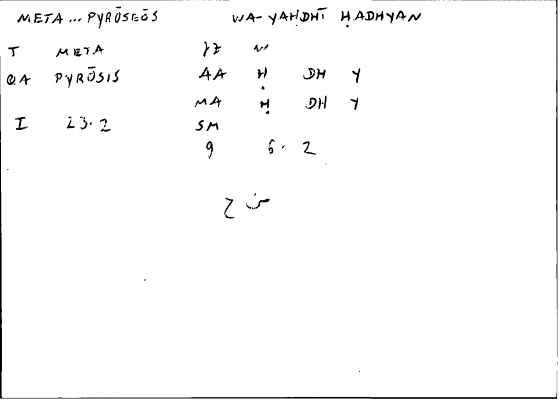 META ... PYRŌSEŌS WA-YAHDHĪ ḤADHYAN
T META ZZ W
QA PYRŌSIS AA H DH Y
MA Ḥ DH Y
I 23.2 SM
9 6.2